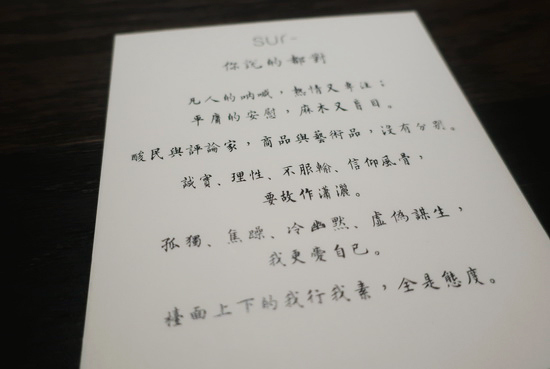 sur-
你說的都對
凡人的吶喊，熱情又專注；
平庸的安慰，麻木又盲目。
酸民與評論家，商品與藝術品，沒有分別。
誠實、理性、不服輸、信仰風骨，
要故作瀟灑。
孤獨、焦躁、冷幽默、虛偽謀生，
我更愛自己。
檯面上下的我行我素，全是態度。